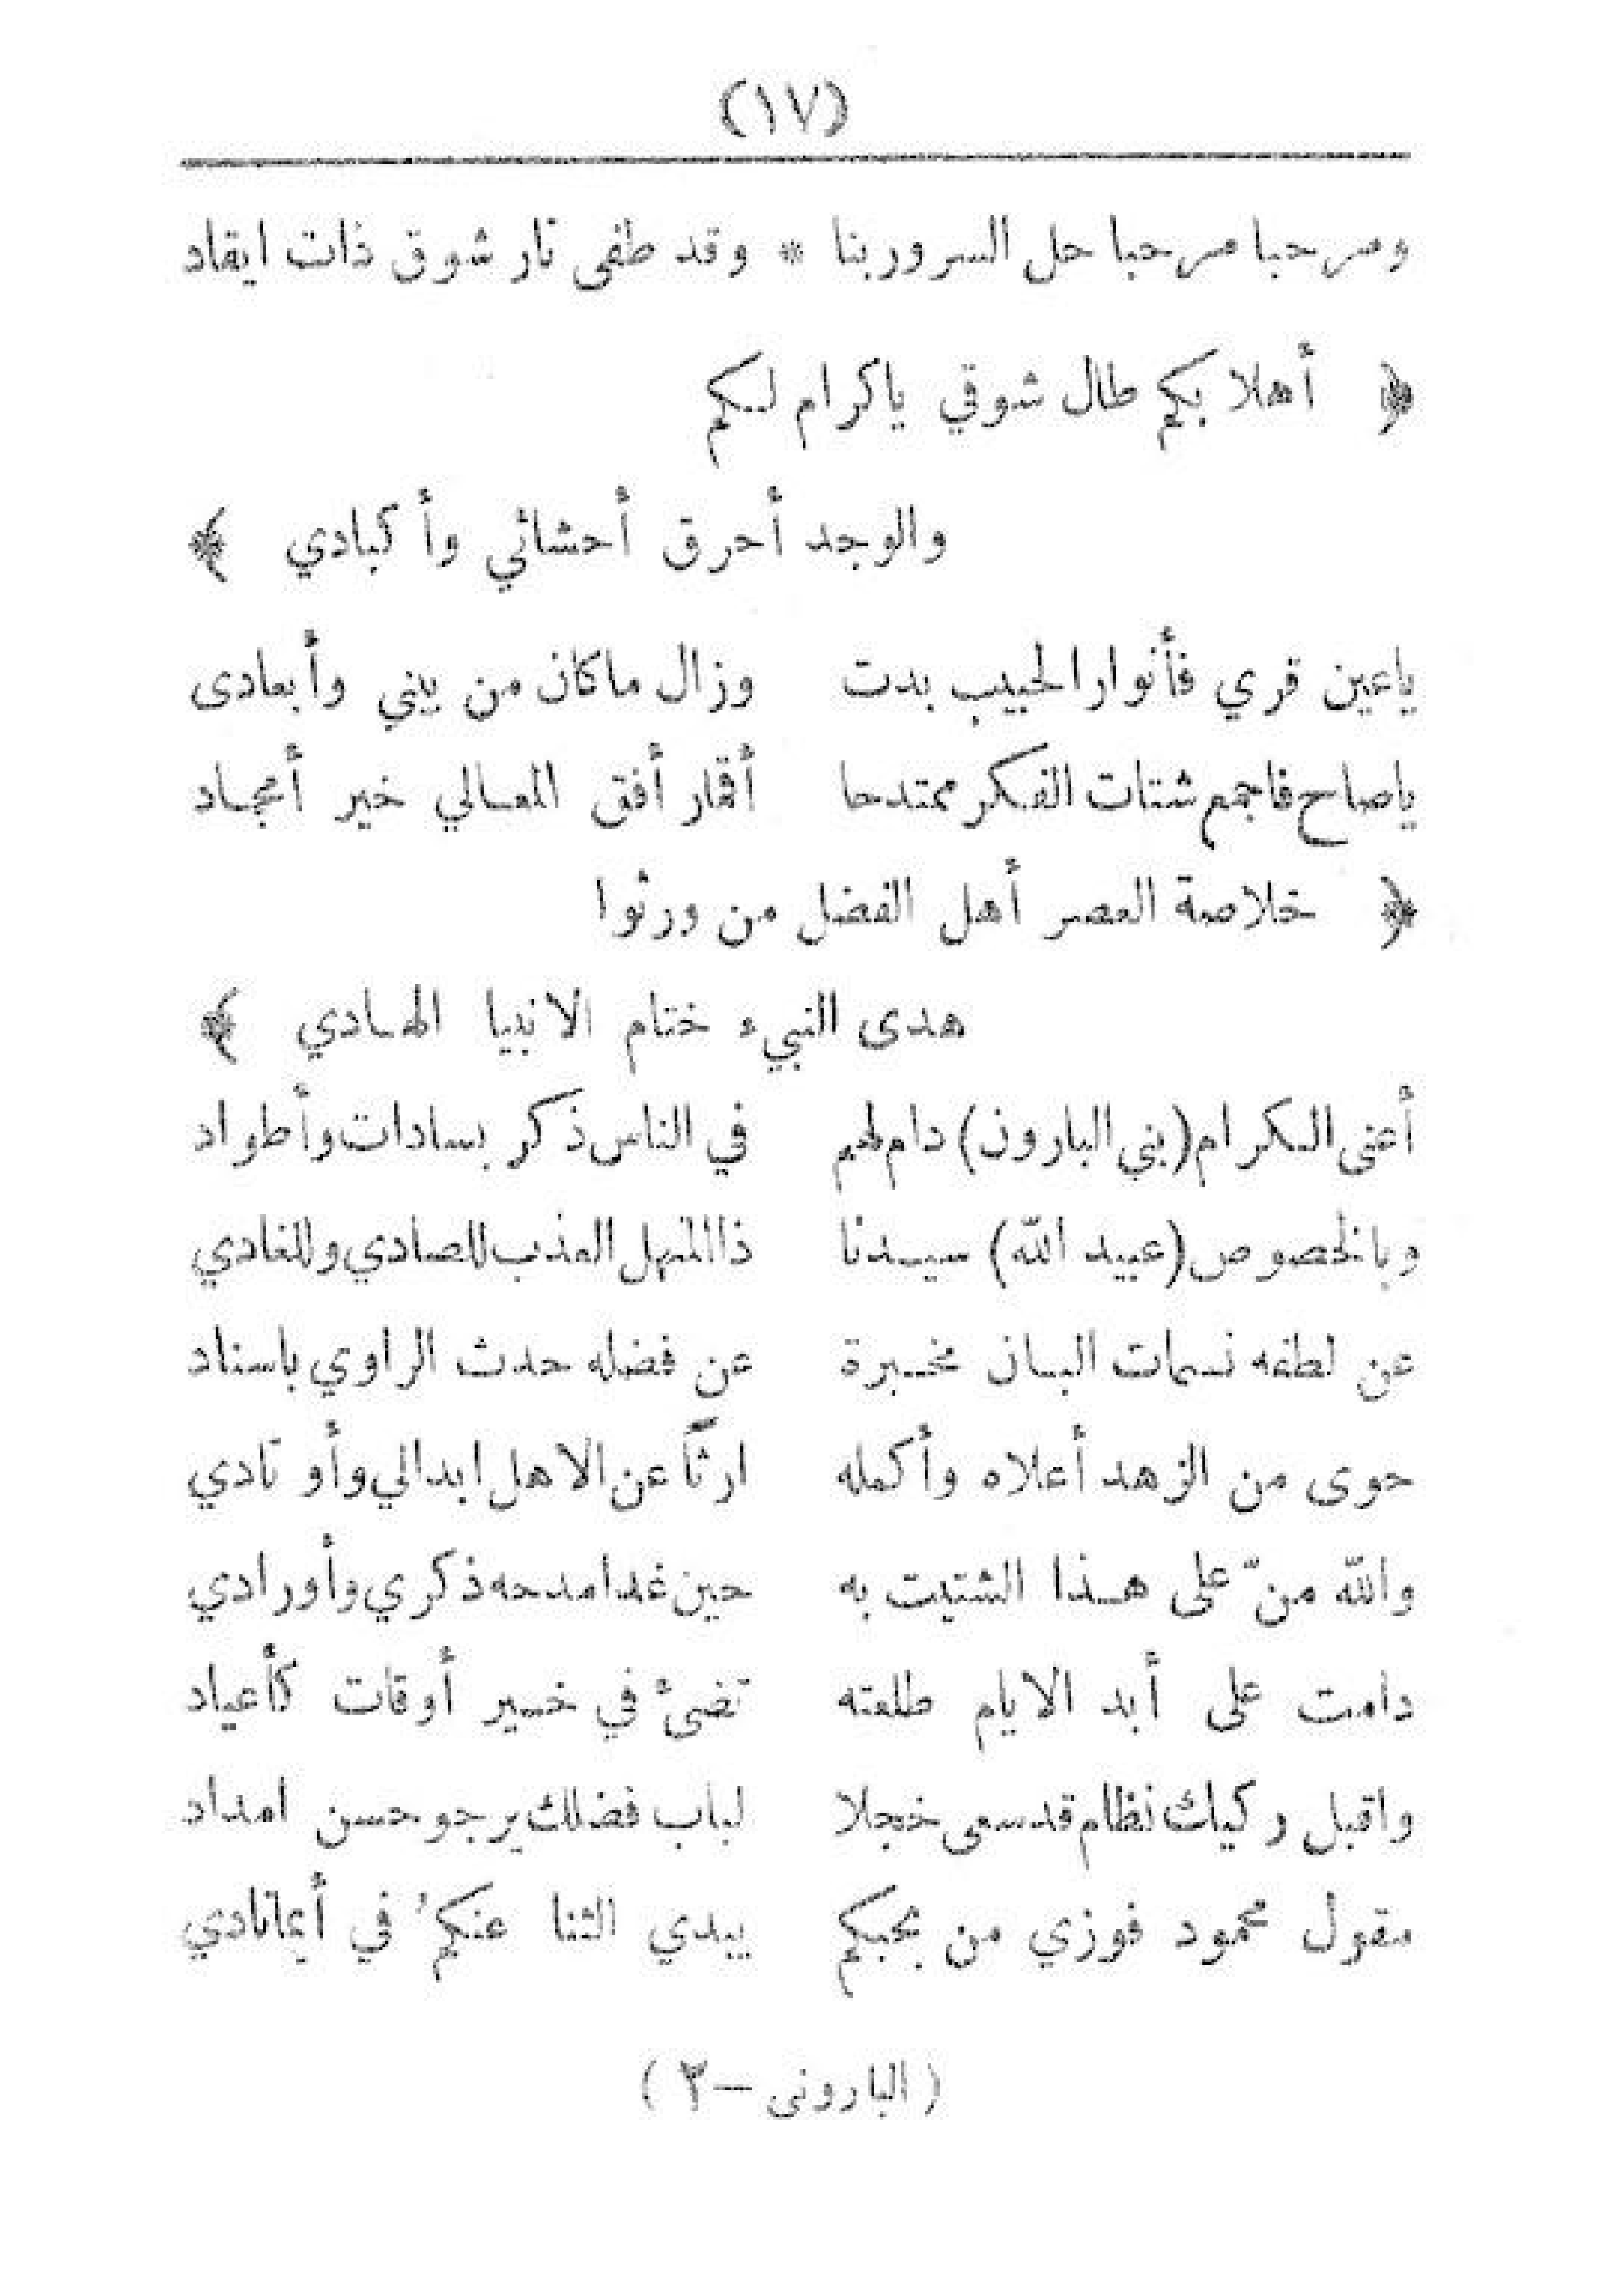 (١٧)
ومرحبا مرحبا حل السرور بنا * وقد طفى نار شوق ذات ايقاد
﴿ أهلا بكم طال شوقي ياكرام لكم
والوجد أحرق أحشائي وأكبادي ﴾
ياعين قري فأنوار الحبيب بدت وزال ماكان من بيني وأبعادى
ياصاح فاجمع شتات الفكر ممتدحا أقمار أفق المعالي خير أمجاد
﴿ خلاصة العصر أهل الفضل من ورثوا
هدى النبيء ختام الانبيا الهادي ﴾
أعنى الكرام (بني البارون) دام لهم في الناس ذكر بسادات وأطواد
وبالخصوص (عبيد الله) سيدنا ذا المنهل العذب للصادي وللغادي
عن لطفه نسمات البان مخبرة عن فضله حدث الراوي باسناد
حوى من الزهد أعلاه وأكمله ارثاً عن الاهل ابدالي وأوتادي
والله منّ على هذا الشتيت به حين غدا مدحه ذكري وأورادي
دامت على أبد الايام طلعته تضىُّ في خير أوقات كأعياد
واقبل ركيك نظام قد سعى خجلا لباب فضلك يرجو حسن امداد
مقول محمود فوزي من بحبكم يبدي الثنا عنكمُ في أيمانادي
( البارونى — ٣ )